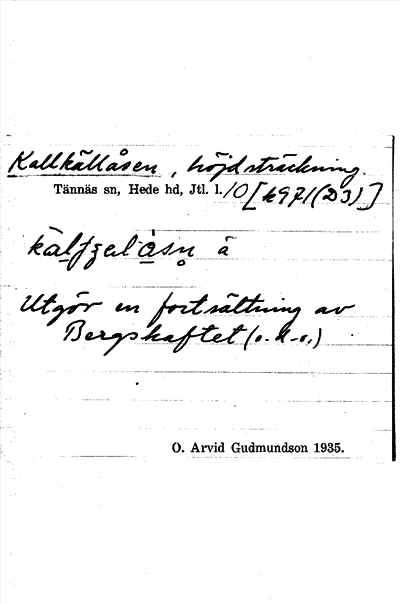 Kallkällåsen, höjdsträckning.
Tännäs sn, Hede hd, Jtl. l. 10 [k971(D3)]
å
Utgör en fortsättning av
Bergskaftet (o.d.o.)
O. Arvid Gudmundson 1935.